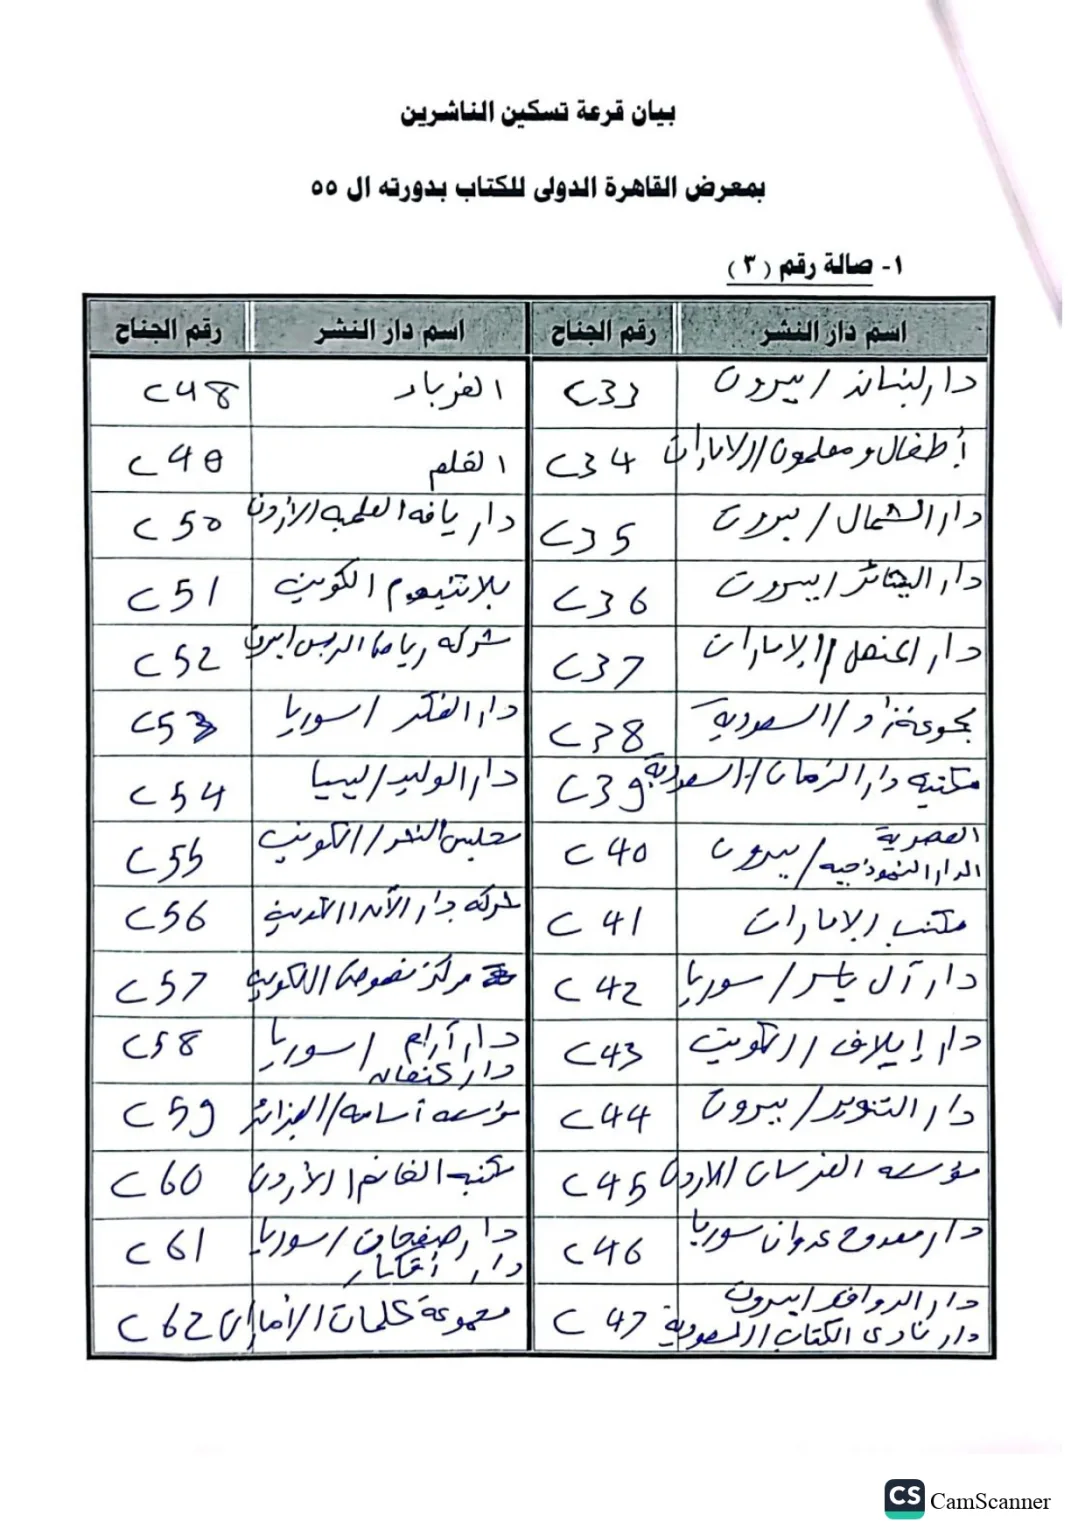 بيان قرعة تسكين الناشرين
بمعرض القاهرة الدولى للكتاب بدورته ال ٥٥
١- صالة رقم ( ٣ )
اسم دار النشر رقم الجناح اسم دار النشر رقم الجناح
دار لبنان / بيروت C33 الغرباء C48
أطفال ومعلمون / الامارات C34 القلم C49
دار الشمال / بيروت C35 دار يافا العلمية / الأردن C50
دار البشائر / بيروت C36 بلاتنيوم / الكويت C51
دار المنهل / الامارات C37 شركه رياض الريس / بيروت C52
مجموعة / السعودية C38 دار الفكر / سوريا C53
مكتبه دار الزمان / السعودية C39 دار الوليد / ليبيا C54
العصرية
الدار النموذجيه / بيروت C40 مجلس النشر / الكويت C55
مكتب / الامارات C41 شركه دار C56
دار آل ياسر / سوريا C42 مركز نصوص / الكويت C57
دار إيلاف / الكويت C43 دار آرام / سوريا C58
دار كنعان
دار التنوير / بيروت C44 مؤسسه أسامه / الجزائر C59
مؤسسه الفرسان / الاردن C45 مكتبه الغانم / الأردن C60
دار ممدوح عدوان سوريا C46 دار صفحات / سوريا C61
دار أفكار
دار الروافد / بيروت
دار نادى الكتاب / السعودية C47 مجموعة كلمات / الأمارات C62
CS CamScanner